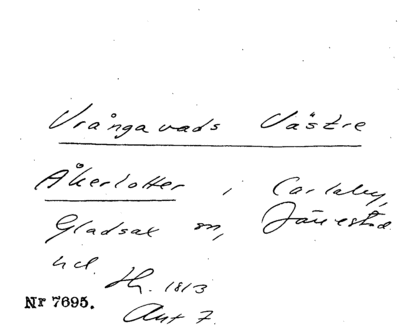 Vrångavads Västre
Åkerlotter i Carlaby,
Gladsax sn, Järrestad
hd. Hh. 1813
Nr 7695.
Aut 7.